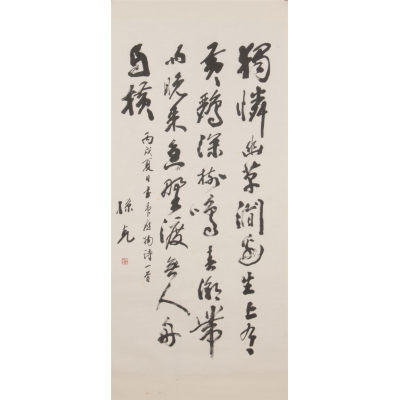 獨憐幽草澗邊生上有
黃鸝深樹鳴春潮帶
雨晚來急野渡無人舟
自橫
丙戌夏日書韋應物詩一首